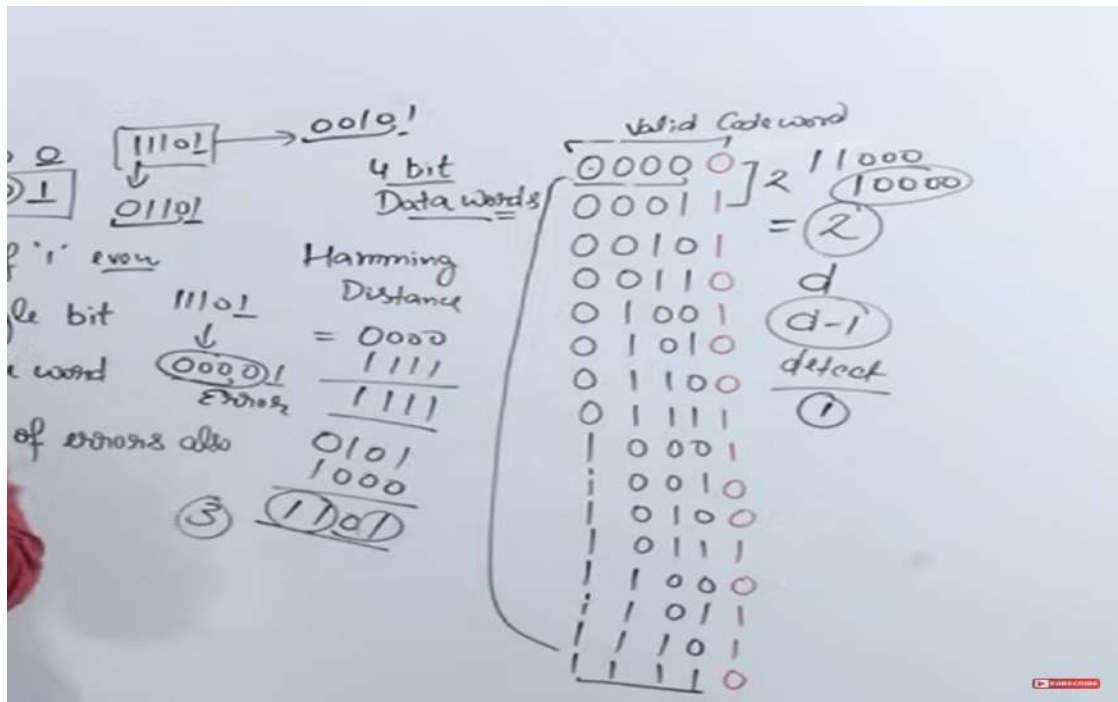 0
1
11101
00101
01101
f '1' even
le bit
11101
word
00001
Error
of errors also
4 bit
Data words
Hamming
Distance
= 0000
1111
1111
0101
1000
3 1101
Valid Codeword
0000 0
0001 1
0010 1
0011 0
0100 1
0101 0
0110 0
0111 1
1000 1
1001 0
1010 0
1011 1
1100 0
1101 1
1110 1
1111 0
2 11000
10000
= 2
d
d-1
detect
1
SUBSCRIBE